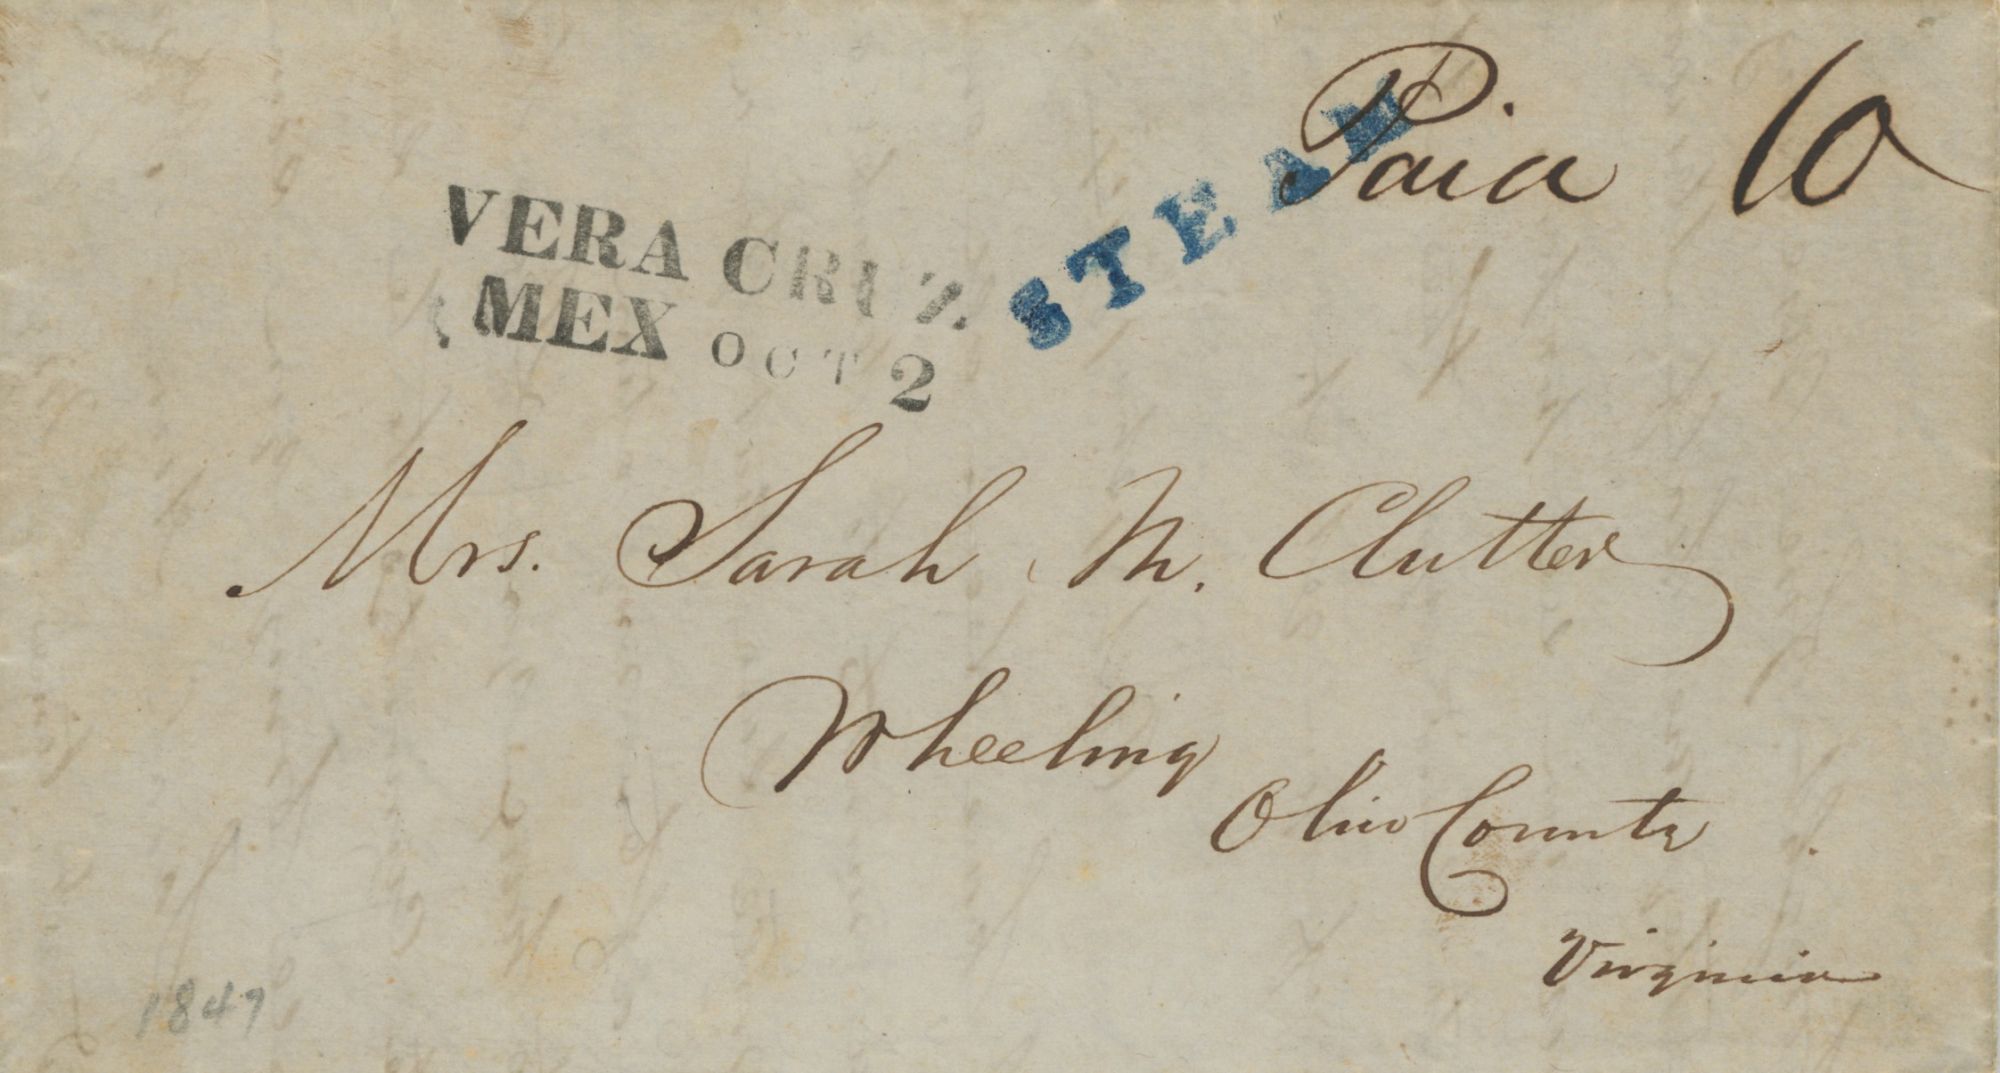 Paid 10
STEAM
VERA CRUZ.
MEX OCT 2
Mrs. Sarah M. Clutter
Wheeling
Ohio County
Virginia
1847